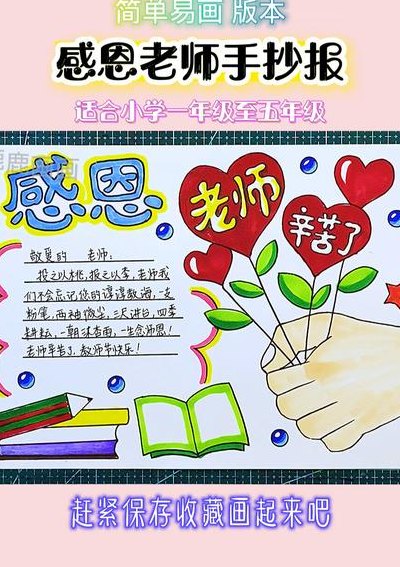 简单易画 版本
感恩老师手抄报
适合小学一年级至五年级
感恩
老师
辛苦了
敬爱的 老师：
投之以桃，报之以李，老师我
们不会忘记您的谆谆教诲，一支
粉笔，两袖微尘，三尺讲台，四季
耕耘，一朝沐杏雨，一生念师恩！
老师辛苦了，教师节快乐！
赶紧保存收藏画起来吧